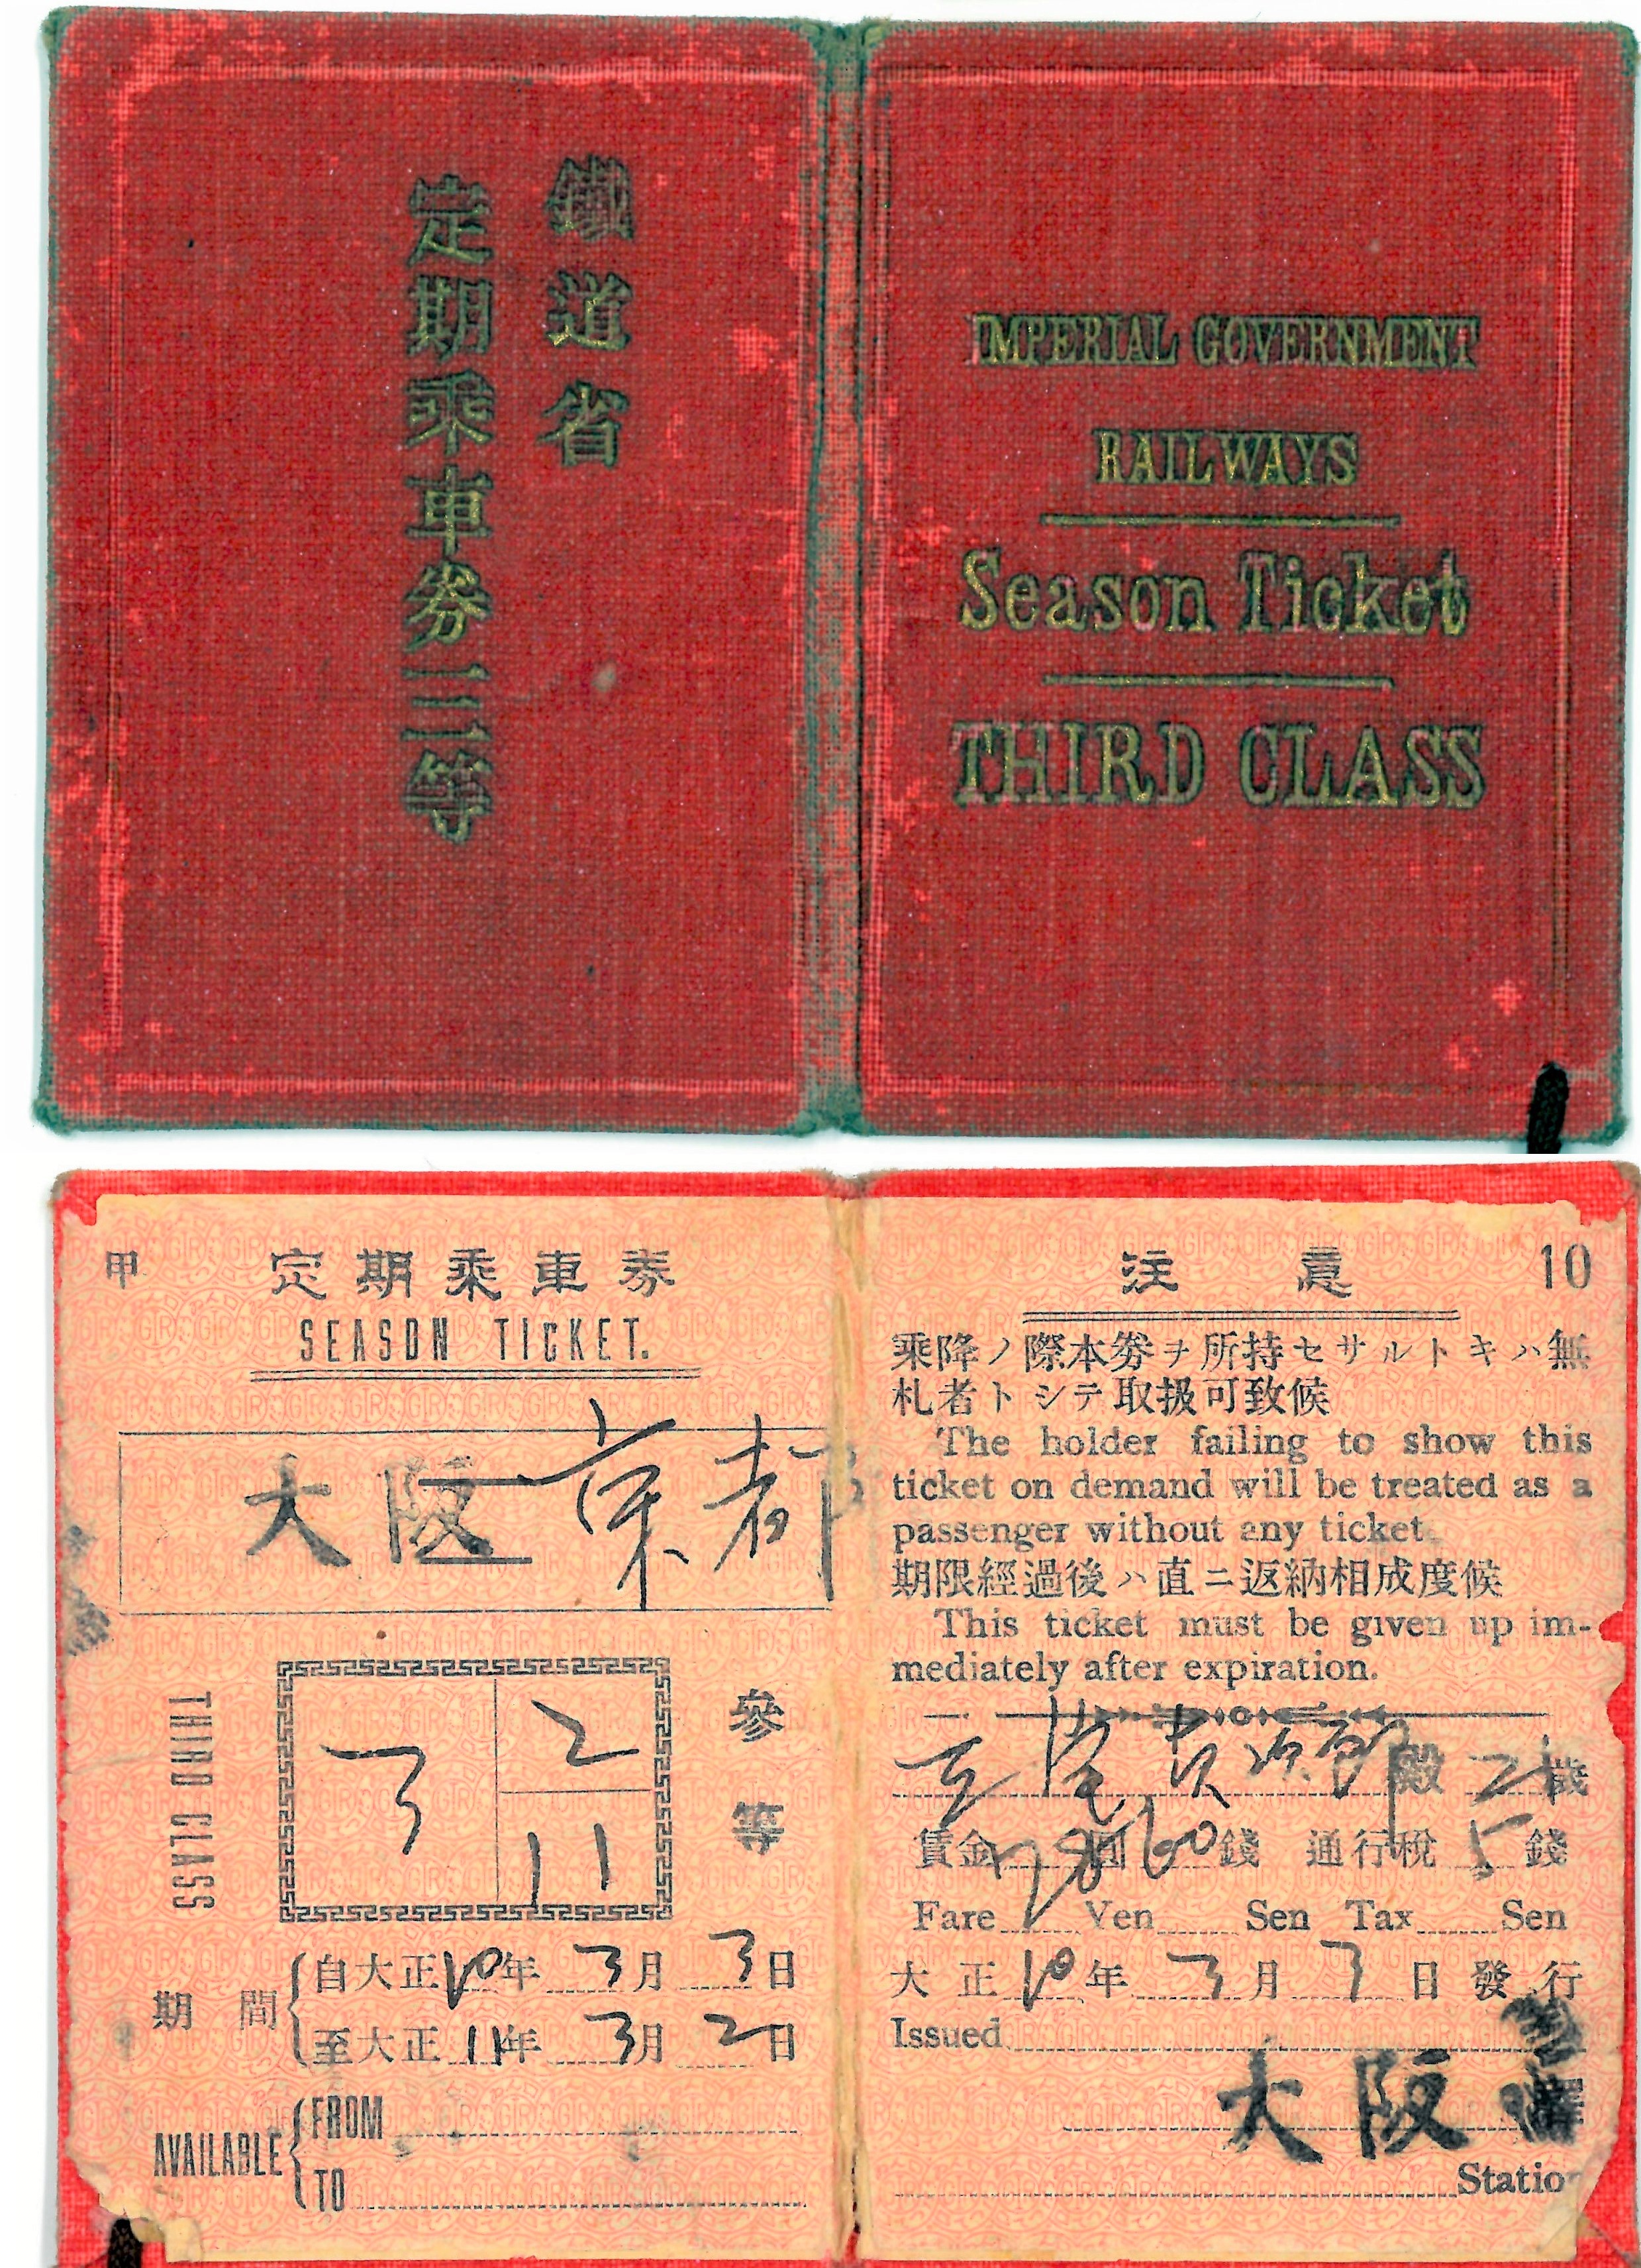 鐵道省
定期乘車券三等
IMPERIAL GOVERNMENT
RAILWAYS
Season Ticket
THIRD CLASS
甲 定期乘車券
SEASON TICKET.
大阪 京都
THIRD CLASS
3 2
11
參等
期間
自大正10年3月3日
至大正11年3月2日
AVAILABLE
FROM
TO
注意 10
乘降ノ際本券ヲ所持セサルトキハ無
札者トシテ取扱可致候
The holder failing to show this
ticket on demand will be treated as a
passenger without any ticket.
期限經過後ハ直ニ返納相成度候
This ticket must be given up im-
mediately after expiration.
尾 次郎殿 21歳
賃金 圓60錢 通行稅5錢
Fare Yen Sen Tax Sen
大正10年3月3日發行
Issued
大阪驛
Station